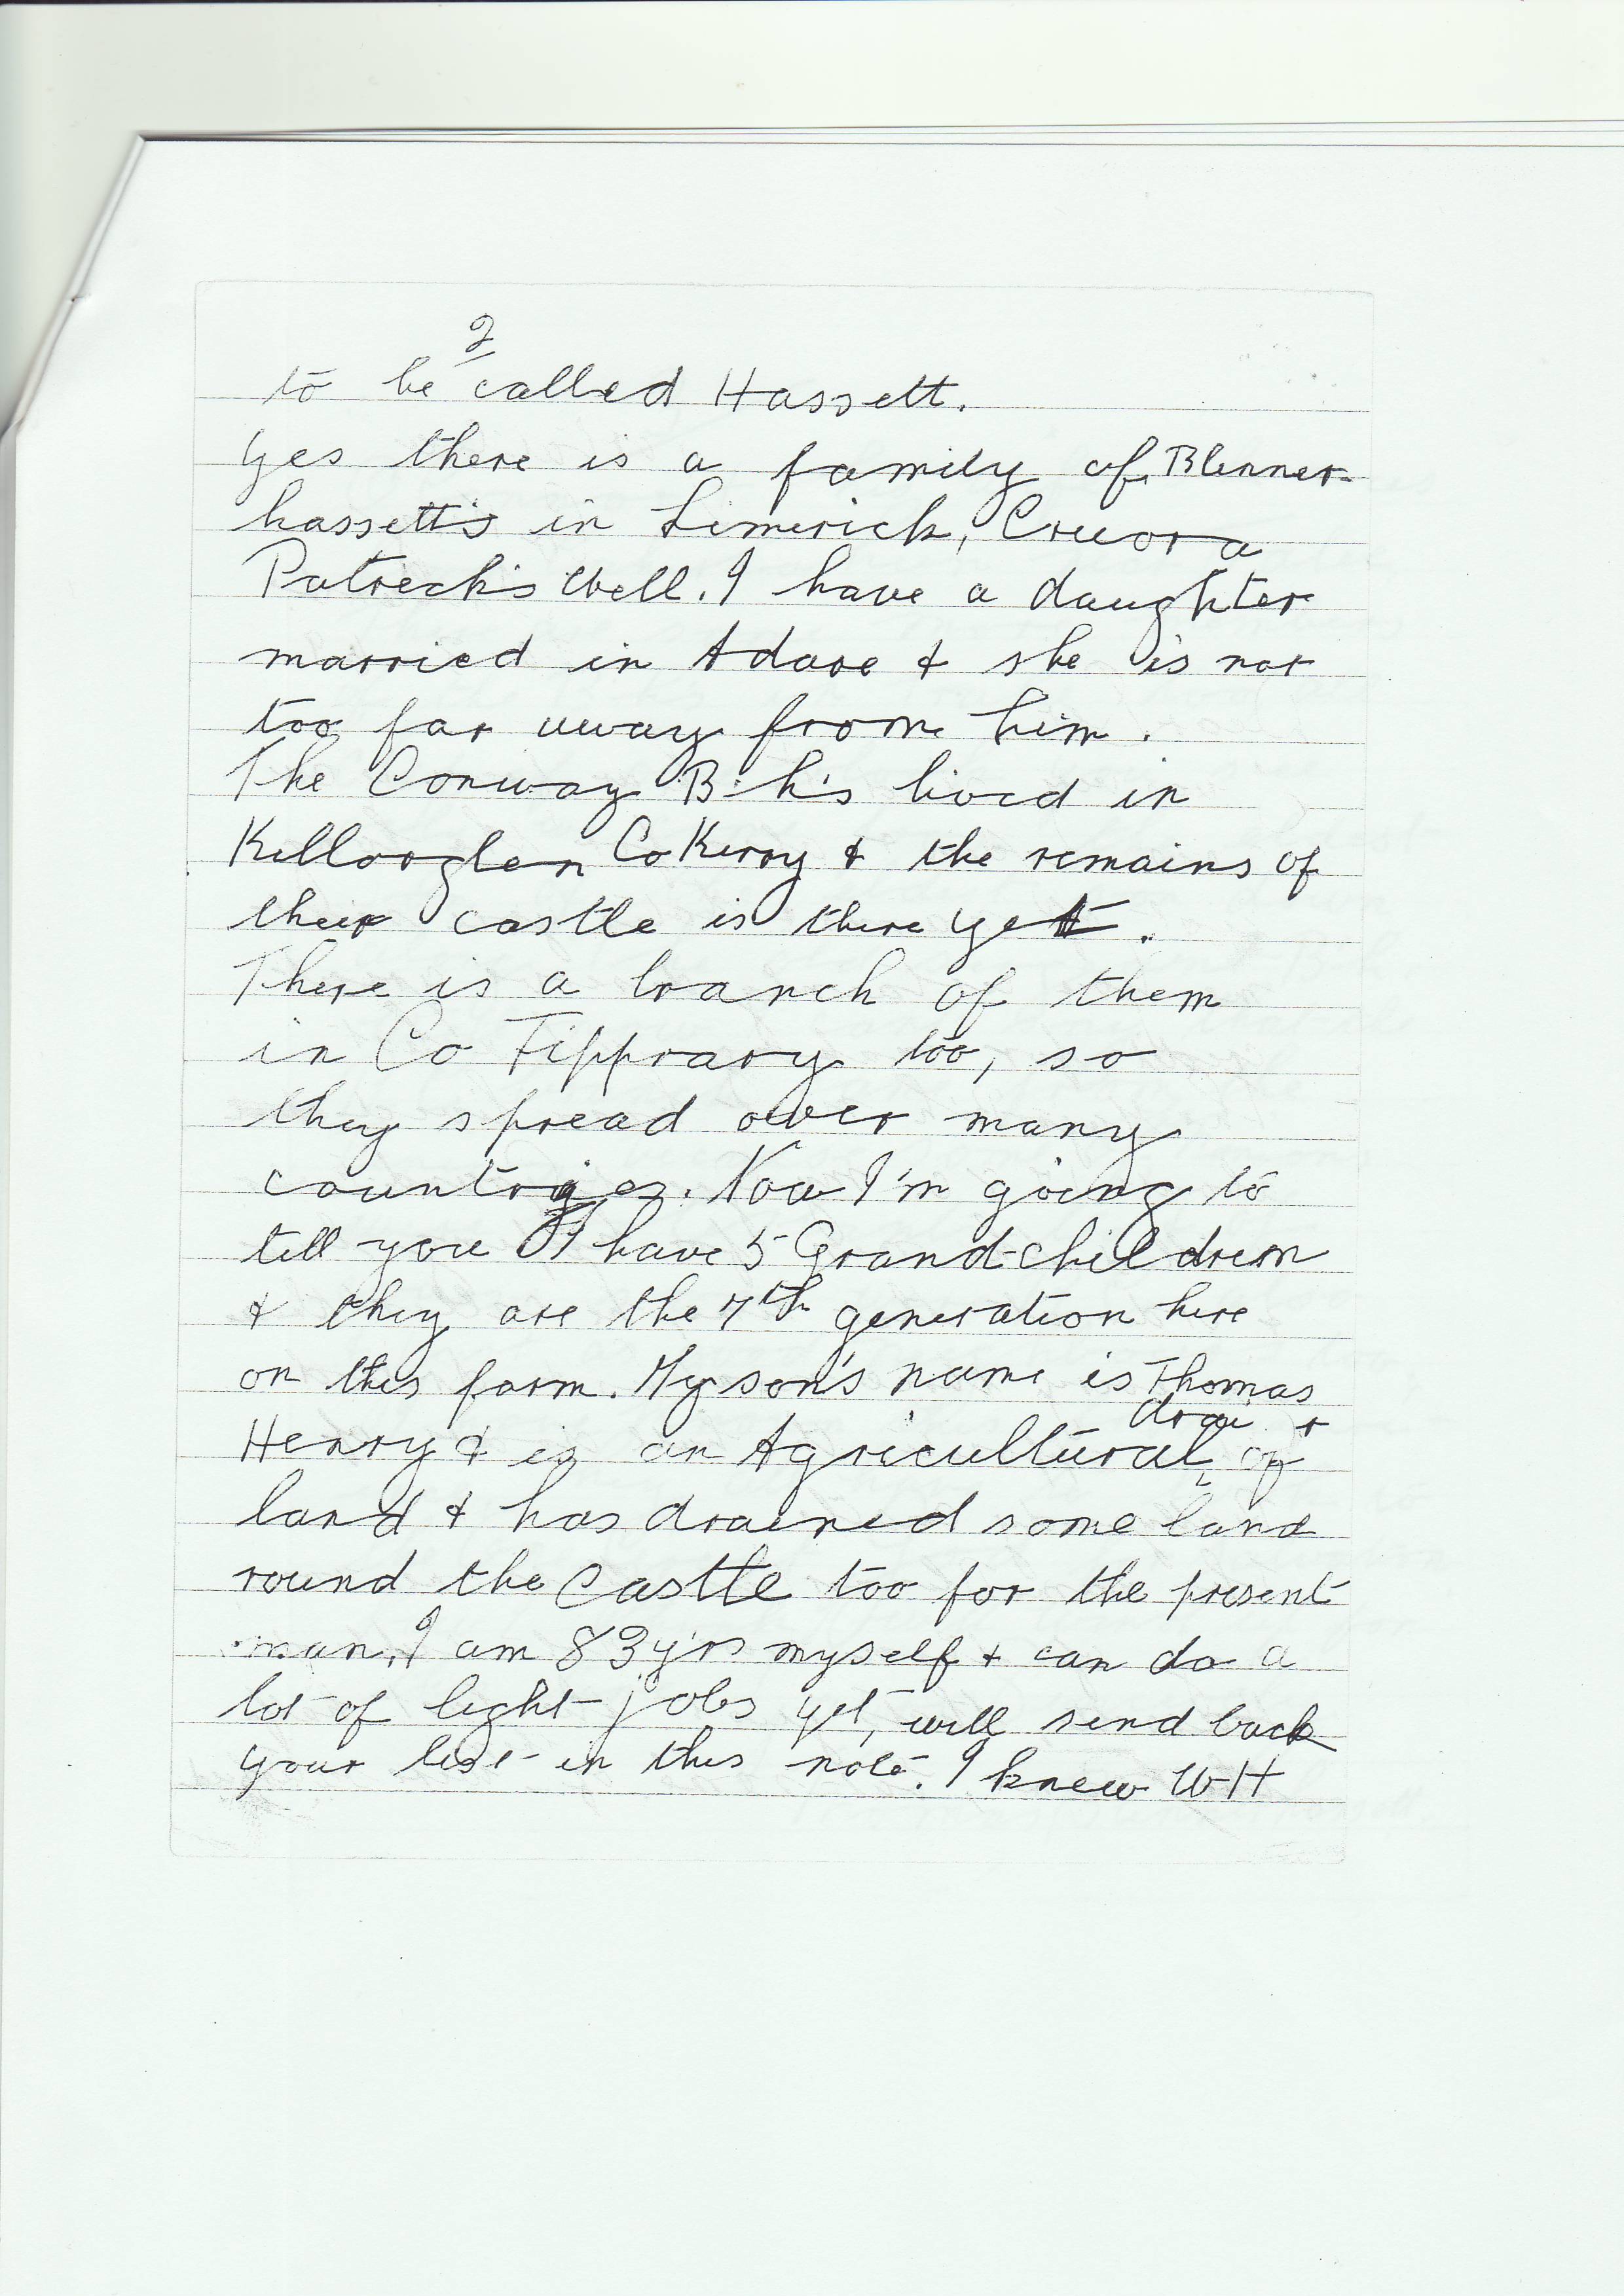 2
to be called Hassett.
Yes there is a family of Blenner-
hassett's in Limerick, Creeora
Patrick's Well. I have a daughter
married in Adare & she is not
too far away from him.
The Conway B.h's lived in
Killorglen Co Kerry & the remains of
their castle is there yet.
There is a branch of them
in Co Tipprary too, so
they spread over many
countries. Now I'm going to
tell you I have 5 Grand-children
& they are the 7th generation here
on this farm. My son's name is Thomas
Henry & is an Agricultural of
land & has drained some land
round the castle too for the present
man. I am 83 yrs myself & can do a
lot of light jobs yet, will send back
your list in this note. I knew WH